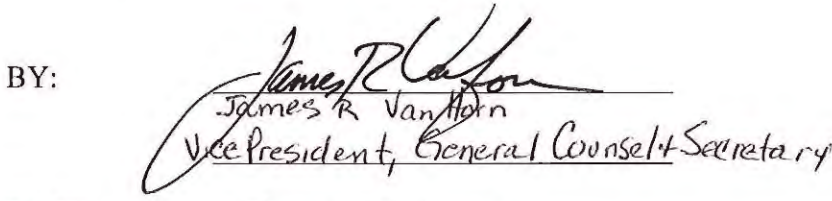 BY:
James R Van Horn
James R Van Horn
Vice President, General Counsel + Secretary